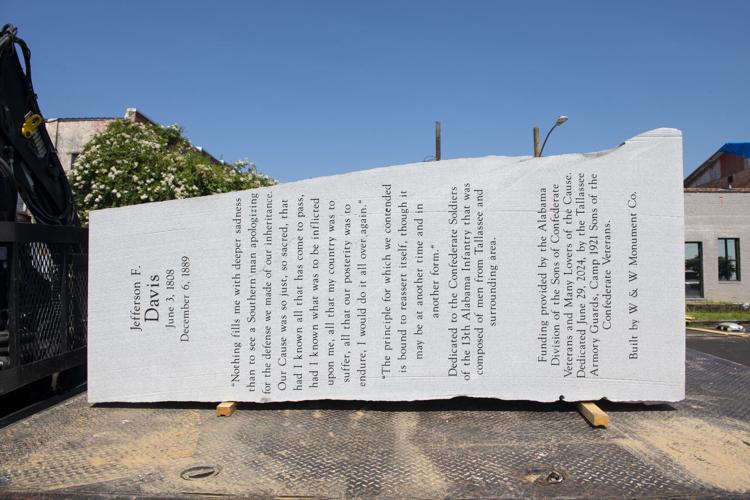 Jefferson F.
Davis
June 3, 1808
December 6, 1889
"Nothing fills me with deeper sadness
than to see a Southern man apologizing
for the defense we made of our inheritance.
Our Cause was so just, so sacred, that
had I known all that has come to pass,
had I known what was to be inflicted
upon me, all that my country was to
suffer, all that our posterity was to
endure, I would do it all over again."
"The principle for which we contended
is bound to reassert itself, though it
may be at another time and in
another form."
Dedicated to the Confederate Soldiers
of the 13th Alabama Infantry that was
composed of men from Tallassee and
surrounding area.
Funding provided by the Alabama
Division of the Sons of Confederate
Veterans and Many Lovers of the Cause.
Dedicated June 29, 2024, by the Tallassee
Armory Guards, Camp 1921 Sons of the
Confederate Veterans.
Built by W & W Monument Co.